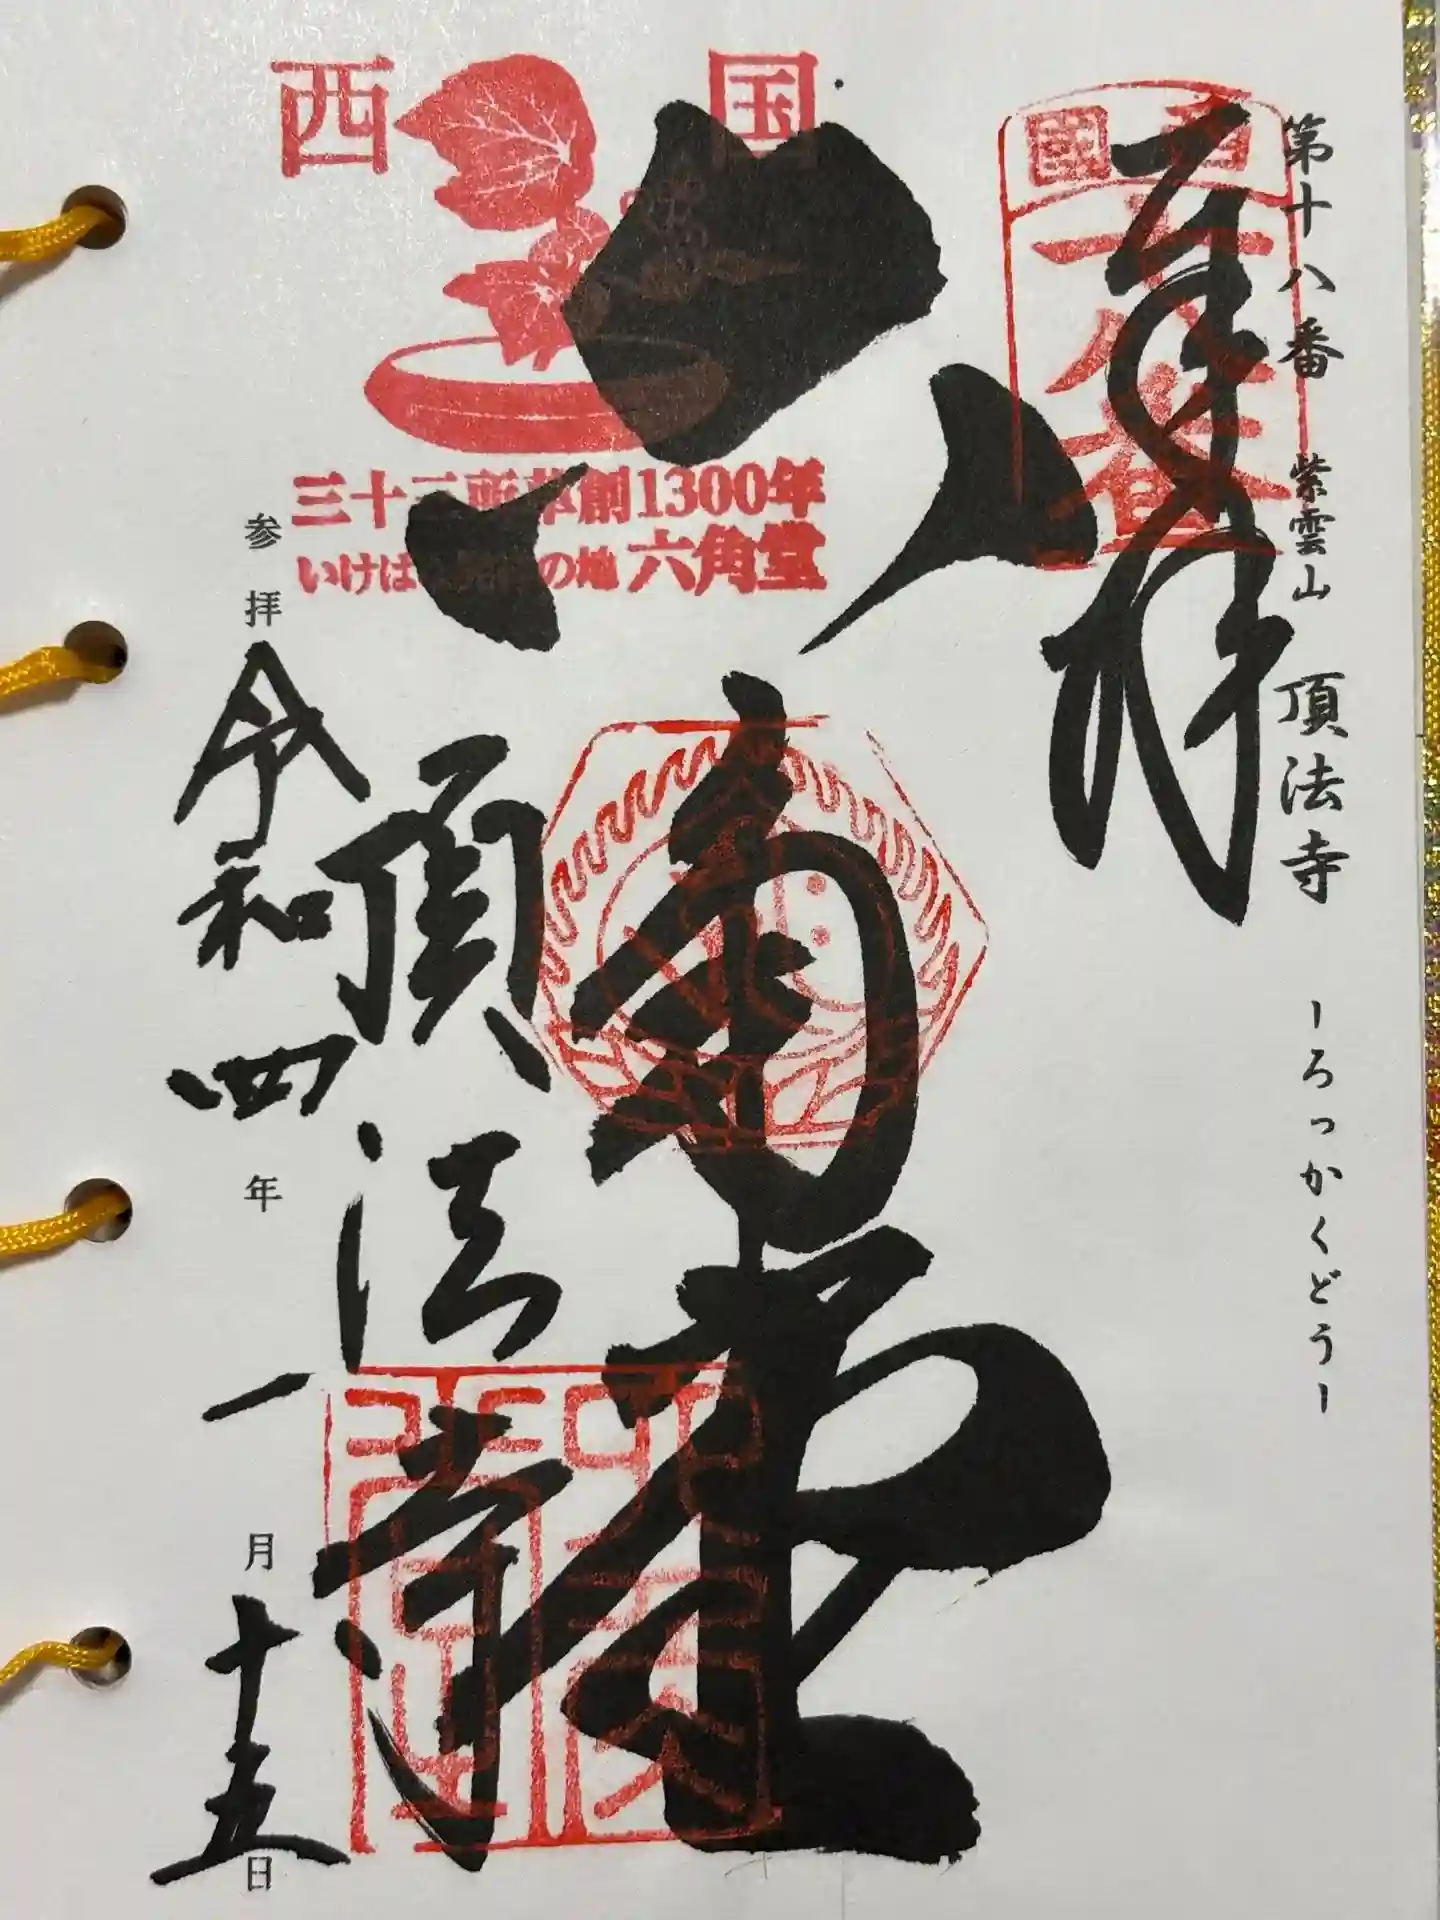 第十八番 紫雲山 頂法寺 ーろっかくどうー
奉拝
西国
十八番
六角堂
西国
三十三所草創1300年
いけばな発祥の地 六角堂
頂法寺
参拝 令和四年 一月十五日